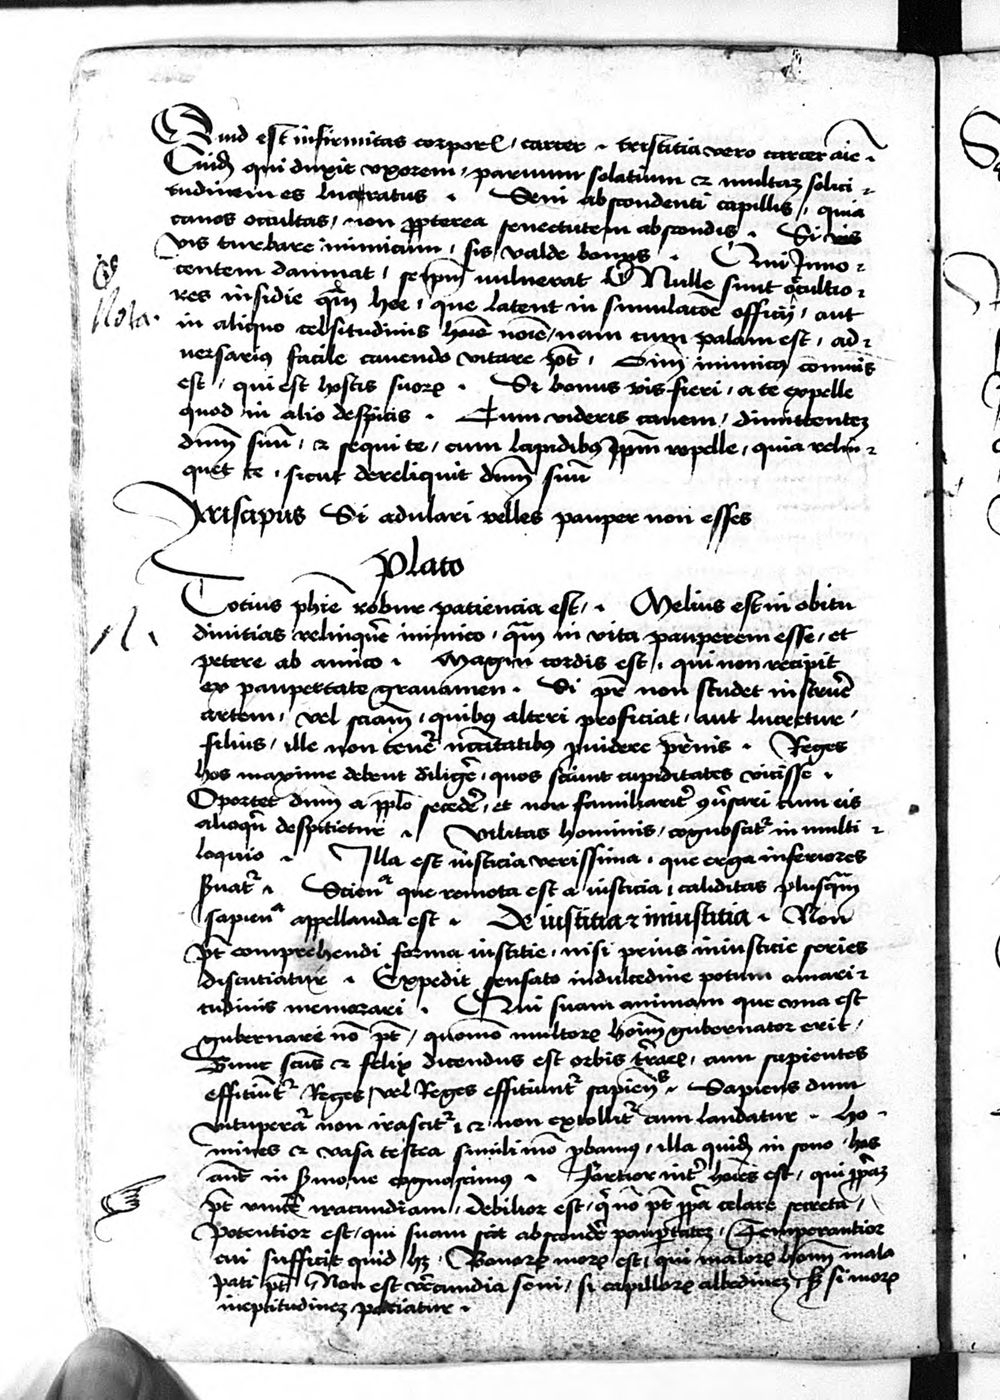 Quid est infirmitas corporꝭ / carcer · tristitia vero carcer aīe ·
Cuidā qui duxit vxorem / paruum solatium ⁊ multaꝫ solici⸗
tudinem es lucratus · Seni abscondenti capillis / quia
canos occultas / non ꝓpterea senectutem abscondis · Si vis
vis turbare inimicum / sis valde bonus · Qui Inno⸗
centem damnat / seipm̄ uulnerat Nulle sunt occultio⸗
Nota·
res insidie qm̄ hee / que latent in simulatōe officij / aut
in aliquo celsitudinis noīe / nam cum palam est / ad⸗
uersariꝰ facile cauendo vitare pōt / Oīm inimicꝰ comūis
est / qui est hostis suoꝝ · Si bonus vis fieri / a te expelle
quod in alio despicis · Cum videris canem / dimittenteꝫ
dūm suū / ⁊ sequi te / cum lapidibꝰ ipm̄ repelle / quia relin⸗
quet te / sicut dereliquit dūm suū
Si adulari velles pauper non esses
Plato
Totius phīe robur patiencia est / · Melius est in obitu
diuitias relinquēe inimico / qm̄ in vita pauperem esse / et
petere ab amico · Magni cordis est / qui non recipit
ex paupertate grauamen · Si pr̄ non studet instruēe
artem / vel sciam̄ / quibꝰ alteri proficiat / aut lucretur /
filius / ille non tenēt̄ nc̄citatibꝰ ꝓuidere pr̄nis · Reges
hos maxime debent diligēe / quos sciunt cupiditates vicisse ·
Oportet dūm a ppl̄o secedēe / et non familiaritēr ꝯūsari cum eis
alioqn̄ despicietur · Vilitas hominis / cognoscit̄ in multi⸗
loquio · Illa est iusticia verissima / que erga inferiores
ẜuat̄ · Scienᵃ que remota est a iusticia / caliditas plusqm̄
sapienᵃ appellanda est · De iustitia ⁊ iniustitia · Non
pt̄ comprehendi forma iustitie / nisi prius iniusticie series
discutiatur · Expedit sensato in dulcedine potum amari⸗
tudinis memorari · Qui suam animam que vna est
gubernare nō pt̄ / quomō multoꝝ hoīm gubernator erit /
Tunc scūs ⁊ felix dicendus est orbis tr̄raꝝ / cum sapientes
effitiūt̄ Reges / vel Reges effitiunt̄ sapienᵉˢ · Sapiens dum
vituperāt̄ non irascit̄ / ⁊ non extollit̄ cum laudatur · Ho⸗
mines ⁊ vasa testea simili mō ꝓbamꝰ / illa quidē in sono / hos
aūt in ẜmone cognoscimꝰ · Fortior int̄ hoīes est / qui ꝓpͥaꝫ
pt̄ vincēe iracundiam / Debilior est / q̄ nō pt̄ ꝓpͥa celare secreta /
Potentior est / qui suam scit abscondēe paupertateꝫ / Temperantior
cui sufficit quid hꝫ · Bonoꝝ moꝝ est / qui maloꝝ hoīm mala
pati pt̄ Non est verēcundia seni / si capilloꝝ albedineꝫ / ꝫ si moꝝ
ineptitudineꝫ patiatur ·